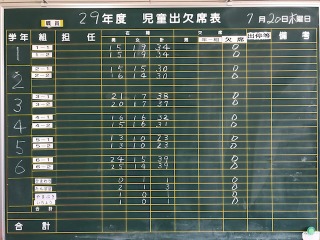 職員
29年度 児童出欠席表 7月20日木曜日
学年 組 担任 在籍 欠席 出停等 備考
男 女 計 男 女 欠席
1 1-1 15 19 34 0
1-2 15 19 34 0
2 2-1 15 15 30 0
2-2 16 14 30 0
3 3-1 21 17 38 0
3-2 20 17 37 0
4 4-1 16 16 32 0
4-2 15 16 31 0
5 5-1 13 10 23 0
5-2 13 10 23 0
6 6-1 24 15 39 0
6-2 25 14 39 0
0 1 1 0
2 1 3 0
1 0 1 0
1 0 1 0
合計
合計